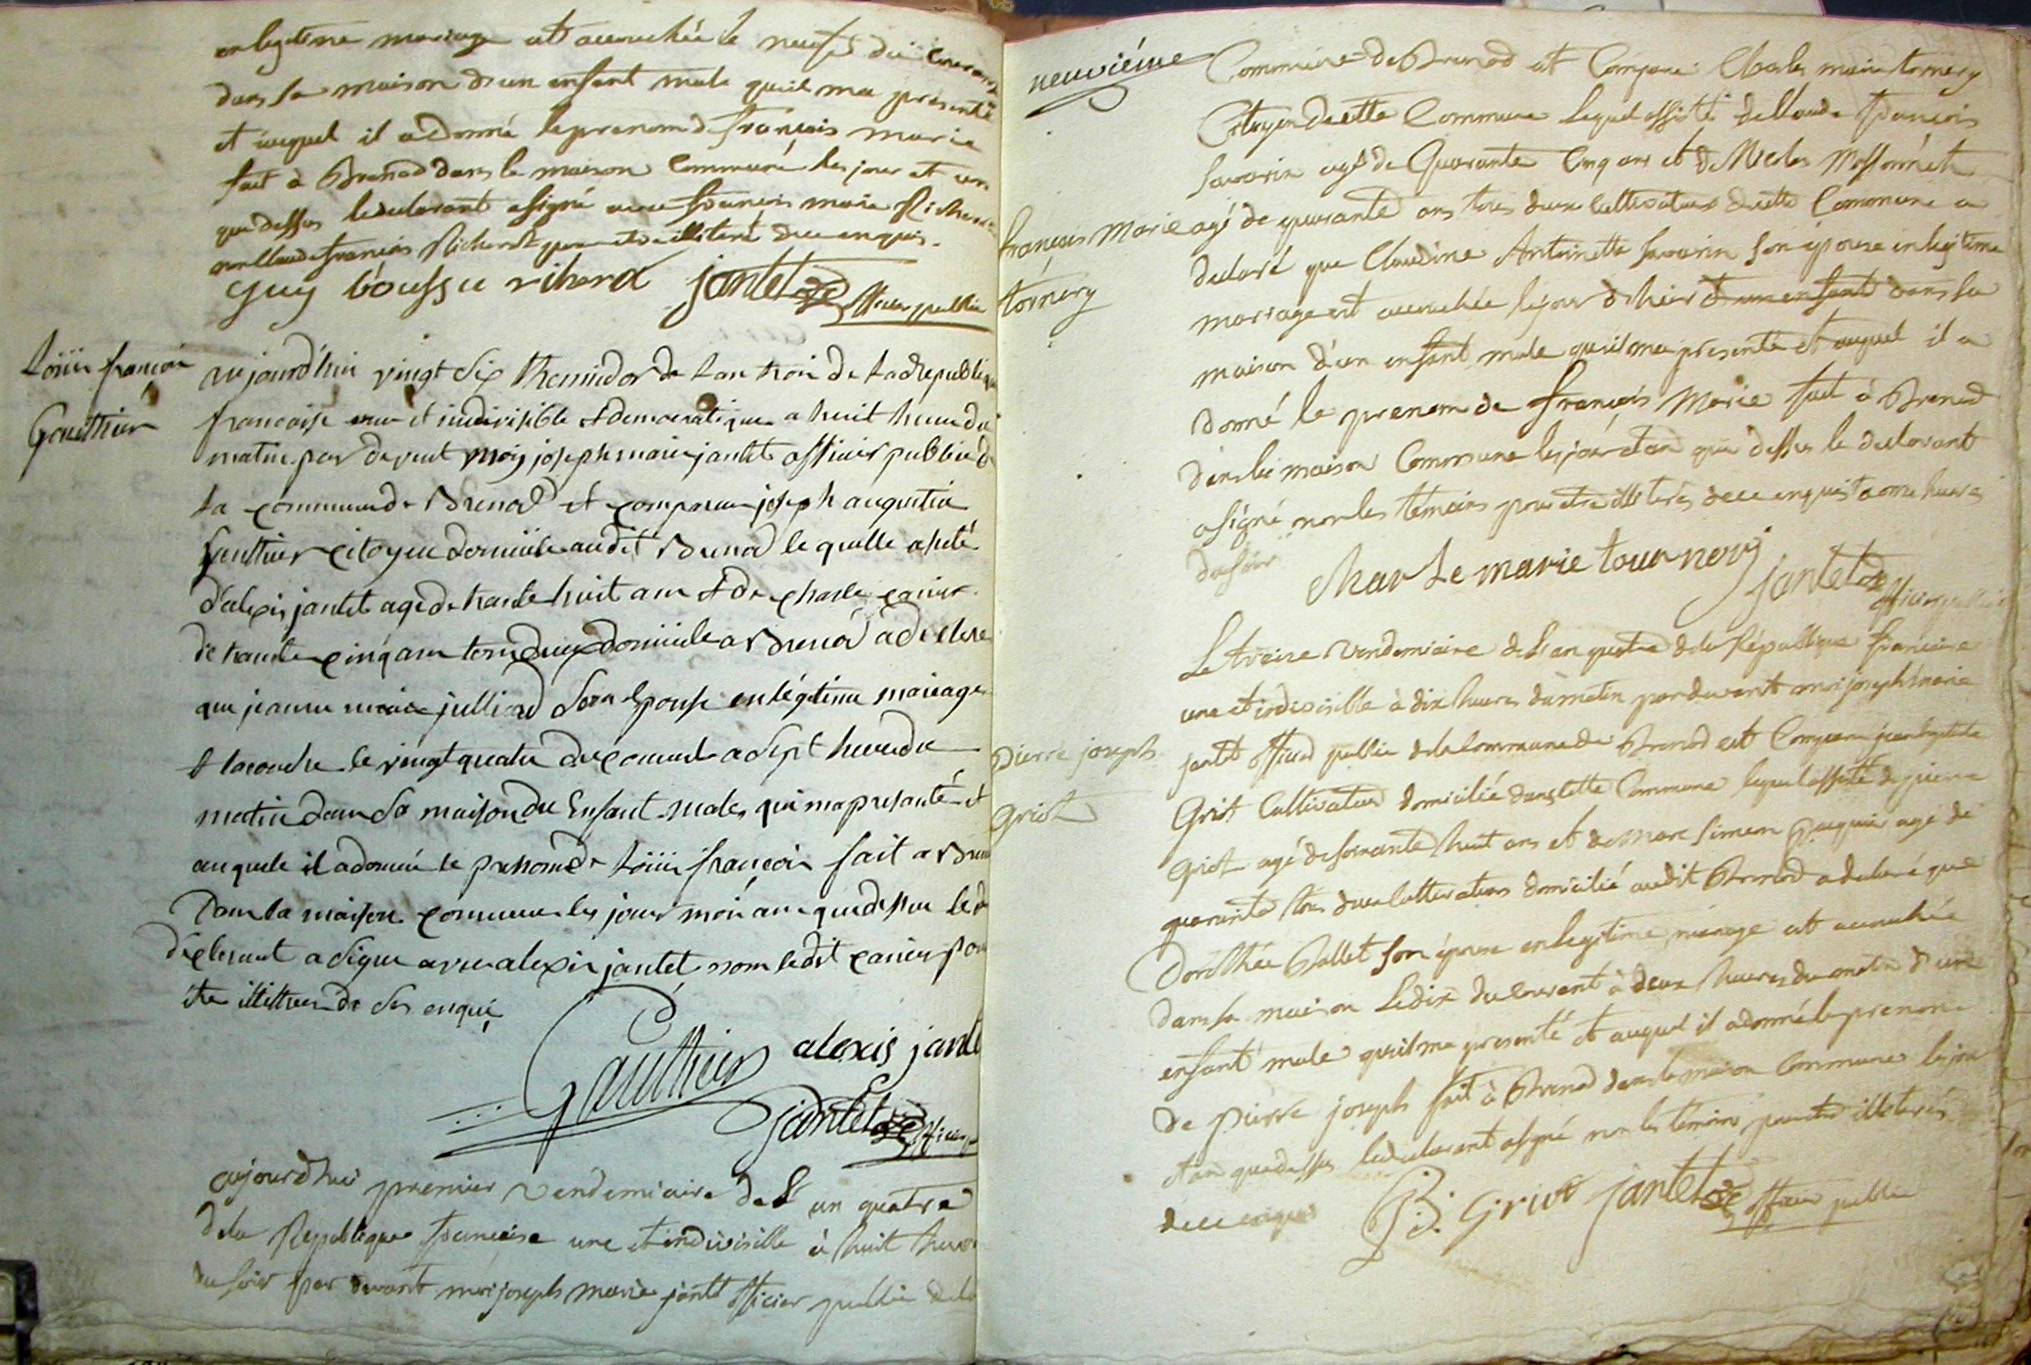 en legitime mariage est accouchée le neuf du courant
dans sa maison d'un enfant male qu'il ma presenté
et auquel il a donné le prenom de françois marie
fait à Brenod dans la maison Commune les jour et an
que dessus le declarant a signé avec françois marie Richerot
non Claude françois Richerot pour etre illiteré de ce enquis.
guy boussu richerd jantet officier public
Loüis françois
Gauthier
aujourd'hui vingt six thermidor de lan troi de la Republique
francaise une et indivisible et democratique a huit heure du
matin par devent moy joseph marie jantet officier public de
la commune de Brenod est comparu joseph augustin
Gauthier citoyen domicile audit Brenod le quelle asisté
d'alexis jantet agé de trante huit ans et de charle carrier
de trante cinq ans tous deux domicile a Brenod a declere
que jeanne marie julliard son epouse en légitime mariage
et acouche le vingt quatre du courant a sept heure du
matin dans sa maison du enfant males qui ma presanté et
au quele il a donné le prenom de Loüis françois fait a Brenod
dans la maison commune les jour moi an que desu le
déclerant a signe avec alexis jantet nom ledit carier pour
etre illittere de ses enqui
Gauthier alexis jantet
jantet officier
aujourd'hui premier vendemiaire de L'an quatre
de la Republique francaise une et indivisible à huit heures
du soir par devant moi joseph marie jantet officier public de la
neuvième
Commune de Brenod est Comparu Charles marie tornery
Citoyen de cette Commune lequel assisté de Claude françois
Savarin agé de Quarante Cinq ans et de Nicolas Mossonnet
françois Marie
tornery
agé de quarante ans tous deux Cultivateurs de cette Commune a
declaré que Claudine Antoinette Savarin son épouse en legitime
mariage est accouchée le jour d'hier d'un enfant dans sa
maison d'un enfant male qu'il ma presenté et auquel il a
donné le prenom de françois Marie fait à Brenod
dans la maison Commune les jour et an que dessus le declarant
a signé non les temoins pour etre illiterés de ce enquis a onze heures
du soir
charle marie tournery
jantet officier public
Le treize vendemiaire de L'an quatre de la République francaise
une et indivisible à dix heures du matin par devant moi joseph marie
jantet officier public de la Commune de Brenod est Comparu jean baptiste
Pierre joseph
Griot
Griot Cultivateur domicilié dans cette Commune lequel assisté de pierre
Griot agé de soixante huit ans et de Marc Simeon agé de
quarante tous deux Cultivateurs domicilié audit Brenod a declaré que
Dorothée Ballet son épouse en legitime mariage est accouchée
dans sa maison Le dix du courant à deux heures du matin d'un
enfant male qu'il ma presenté et auquel il a donné le prenom
de Pierre joseph fait à Brenod dans la maison Commune les jour
et an que dessus le declarant a signé non les temoins pour etre illiterés
de ce enquis
JB. Griot jantet officier public